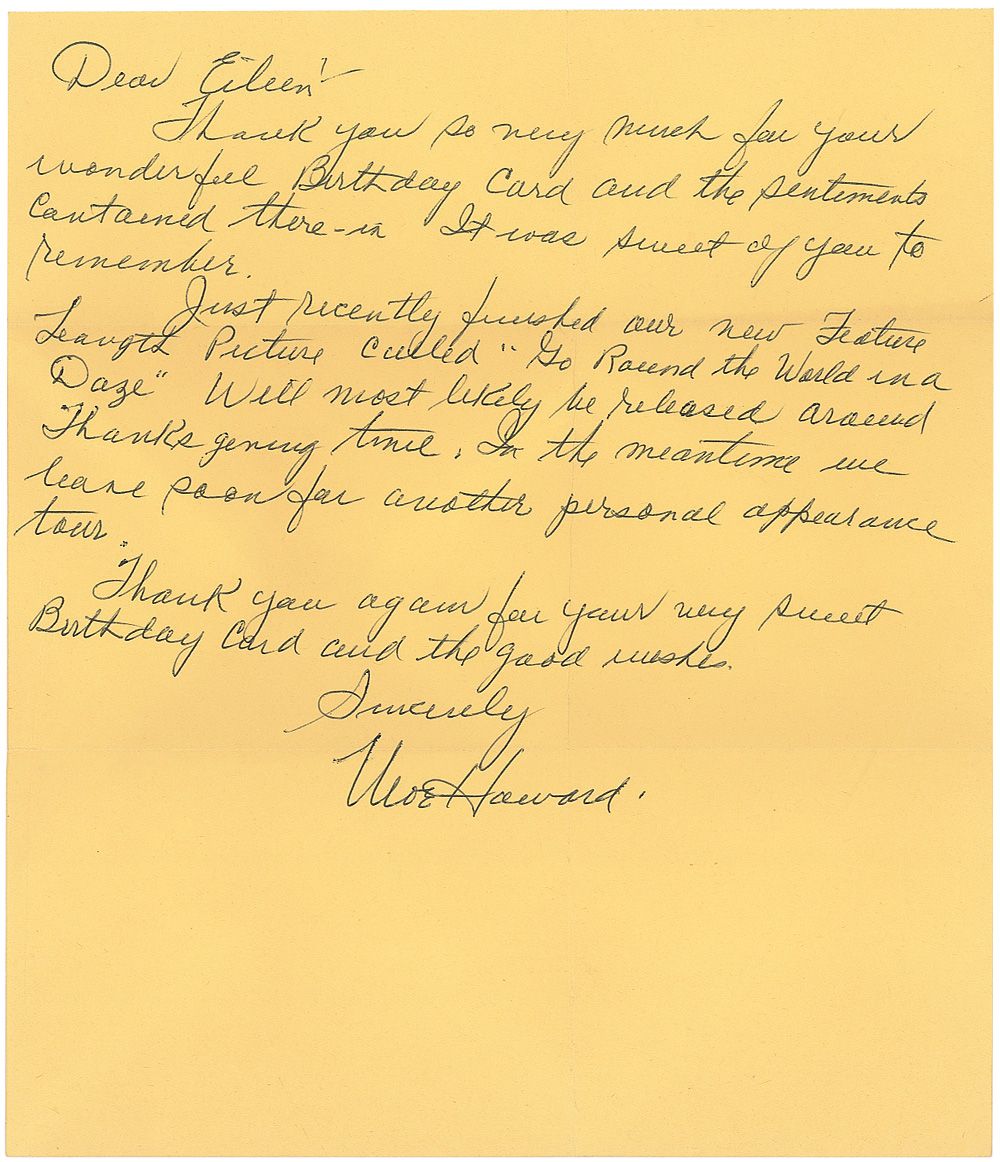 Dear Eileen:-
Thank you so very much for your
wonderful Birthday Card and the sentiments
contained there-in It was sweet of you to
remember.
Just recently finished our new Feature
Leangth Picture called "Go Round the World in a
Daze" Will most likely be released around
Thanksgiving time. In the meantime we
leave soon for another personal appearance
tour.
Thank you again for your very sweet
Birthday Card and the good wishes.
Sincerely
Moe Howard.